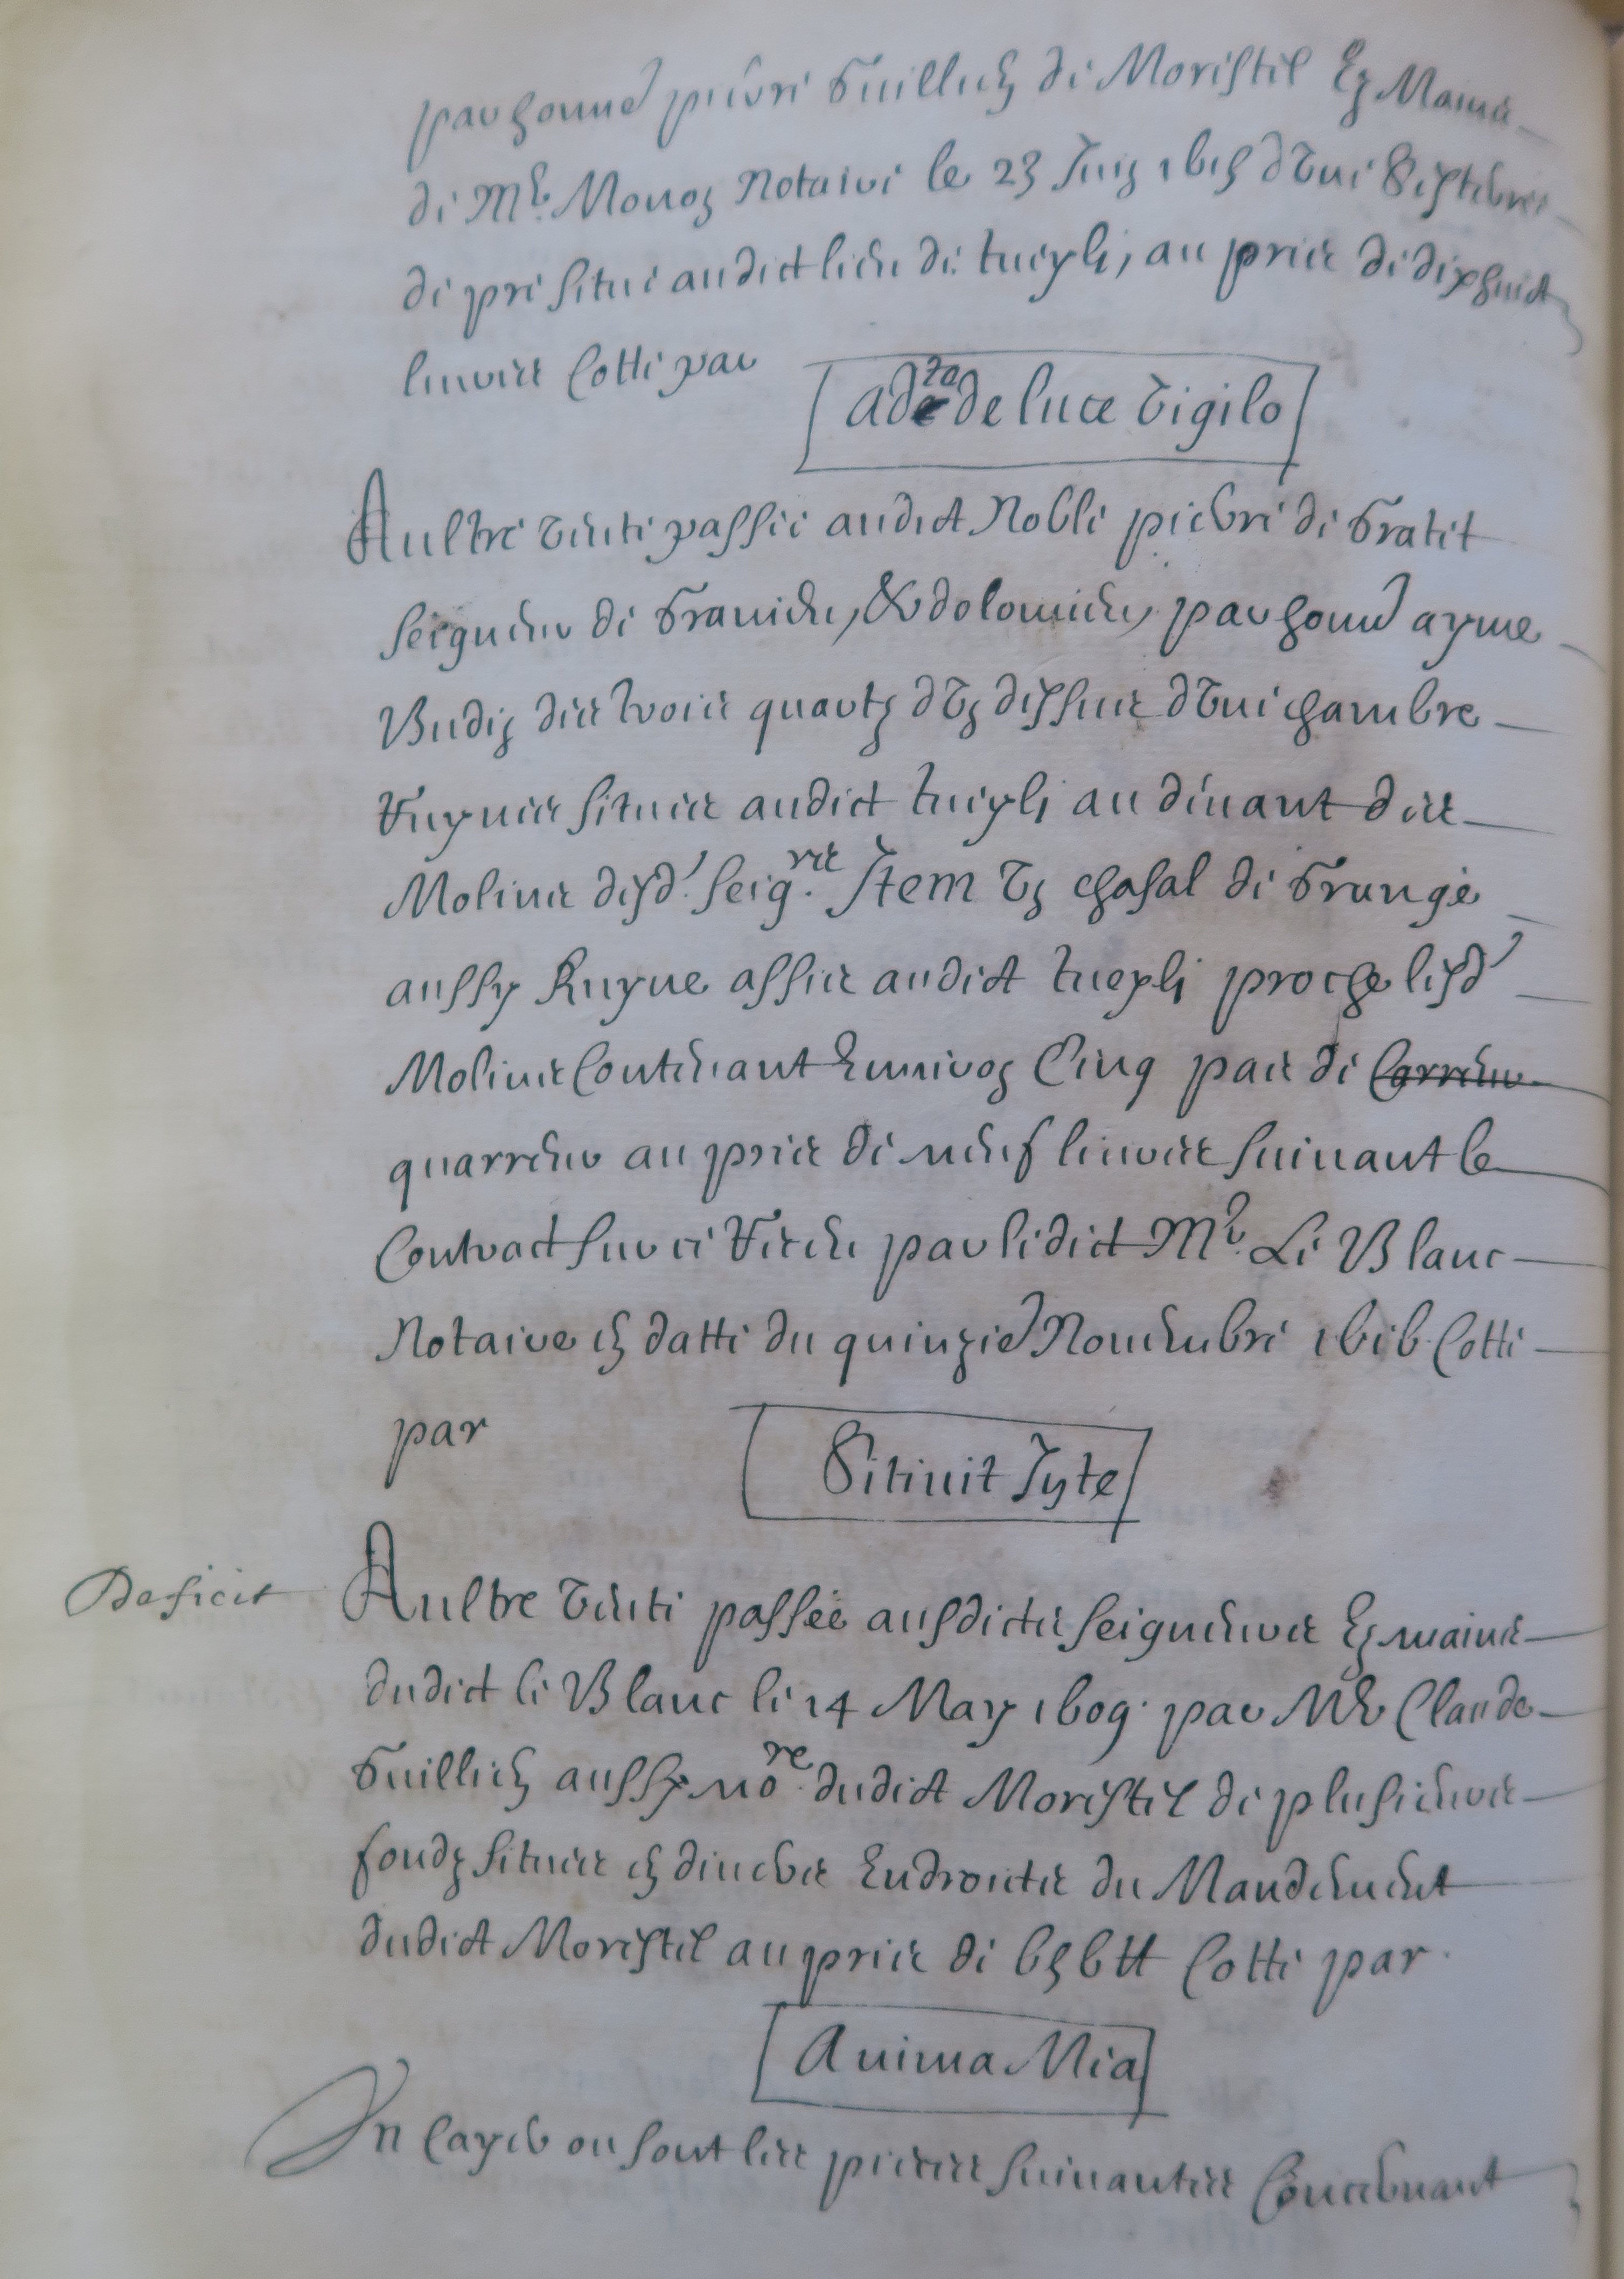 par honne^d pierre Guillien de Morestel Ez Mains
de M^e. Monon Notaire le 23 Juin 1615 d'vne Sestere
de pre situé audict lieu de tueyle, au prix de dixhuict
liures Cotté par
ad ^te de luce vigilo
Aultre vente passée audict Noble pierre de Gratet
seigneur de Granieu, & dolomieu, par honn^d ayme
Budin des trois quartz d'vn dessus d'vne chambre
Ruynes situes audict tueyle au deuant des
Molins desd. seig.^rs Item vn chasal de Grange
aussy Ruyne assis audict tueyle proche lesd
Molins Contenant Enuiron Cinq pas de Carreur
quarreur au prix de neuf liures suiuant le
Contract sur ce Receu par ledict M^e. Le Blanc
Notaire en datte du quinzie^d Nouembre 1616 Cotté
par
Sitiuit In te
Deficit
Aultre vente passée ausdicts seigneurs Ez mains
dudict le Blanc le 14 May 1609. par M^e Claude
Guillien aussy no^re dudict Morestel de plusieurs
fondz situés en diuers Endroicts du Mandement
dudict Morestel au prix de 636 ₶ Cotté par
Anima Mea
Vn Cayer ou sont les pieces suiuantes Concernant